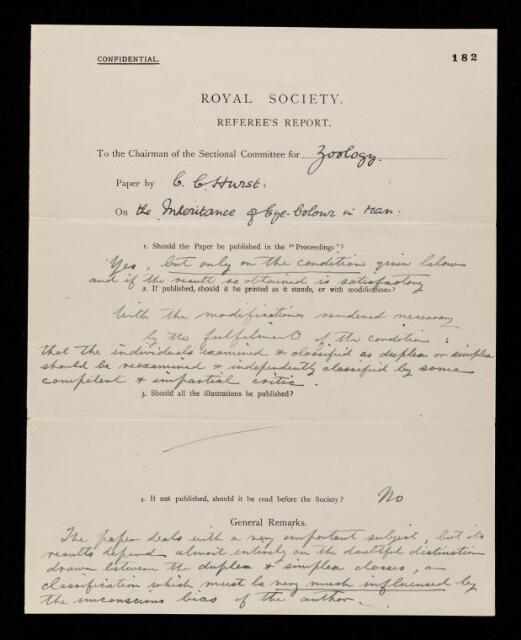 CONFIDENTIAL.
182
ROYAL SOCIETY.
REFEREE'S REPORT.
To the Chairman of the Sectional Committee for Zoology.
Paper by C. C. Hurst:
On the Inheritance of Eye-Colour in Man:
1. Should the Paper be published in the "Proceedings"?
Yes, but only on the condition given below
and if the result so obtained is satisfactory
2. If published, should it be printed as it stands, or with modifications?
With the modifications rendered necessary
by the fulfilment of the condition:
that the individuals examined & classified as duplex or simplex
should be reexamined & independently classified by some
competent & impartial critic.
3. Should all the illustrations be published?
4. If not published, should it be read before the Society? No
General Remarks.
The paper deals with a very important subject, but its
results depend almost entirely on the doubtful distinction
drawn between the duplex & simplex classes, a
classification which must be very much influenced by
the unconscious bias of the author.